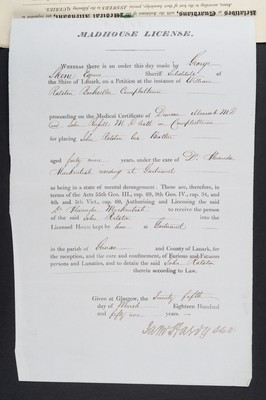 MADHOUSE LICENSE.
WHEREAS there is an order this day made by George
Skene Esquire Sheriff Substitute of
the Shire of Lanark, on a Petition at the instance of William
Ralston Bookseller Campbeltown
proceeding on the Medical Certificate of Duncan M.D
and John M.D. both in Campbeltown
for placing John Ralston his Brother
aged forty years, under the care of Dr Alexander
Mackintosh residing at Gartnavel
as being in a state of mental derangement: These are, therefore, in
terms of the Acts 55th Geo. III., cap. 69, 9th Geo. IV., cap. 34, and
4th and 5th Vict., cap. 60, Authorising and Licensing the said
Dr Alexander Mackintosh to receive the person
of the said John Ralston into the
Licensed House kept by him at Gartnavel
in the parish of Govan and County of Lanark, for
the reception, and the care and confinement, of Furious and Fatuous
persons and Lunatics, and to detain the said John Ralston
therein according to Law.
Given at Glasgow, the twenty fifth
day of March Eighteen Hundred
and fifty one years.—